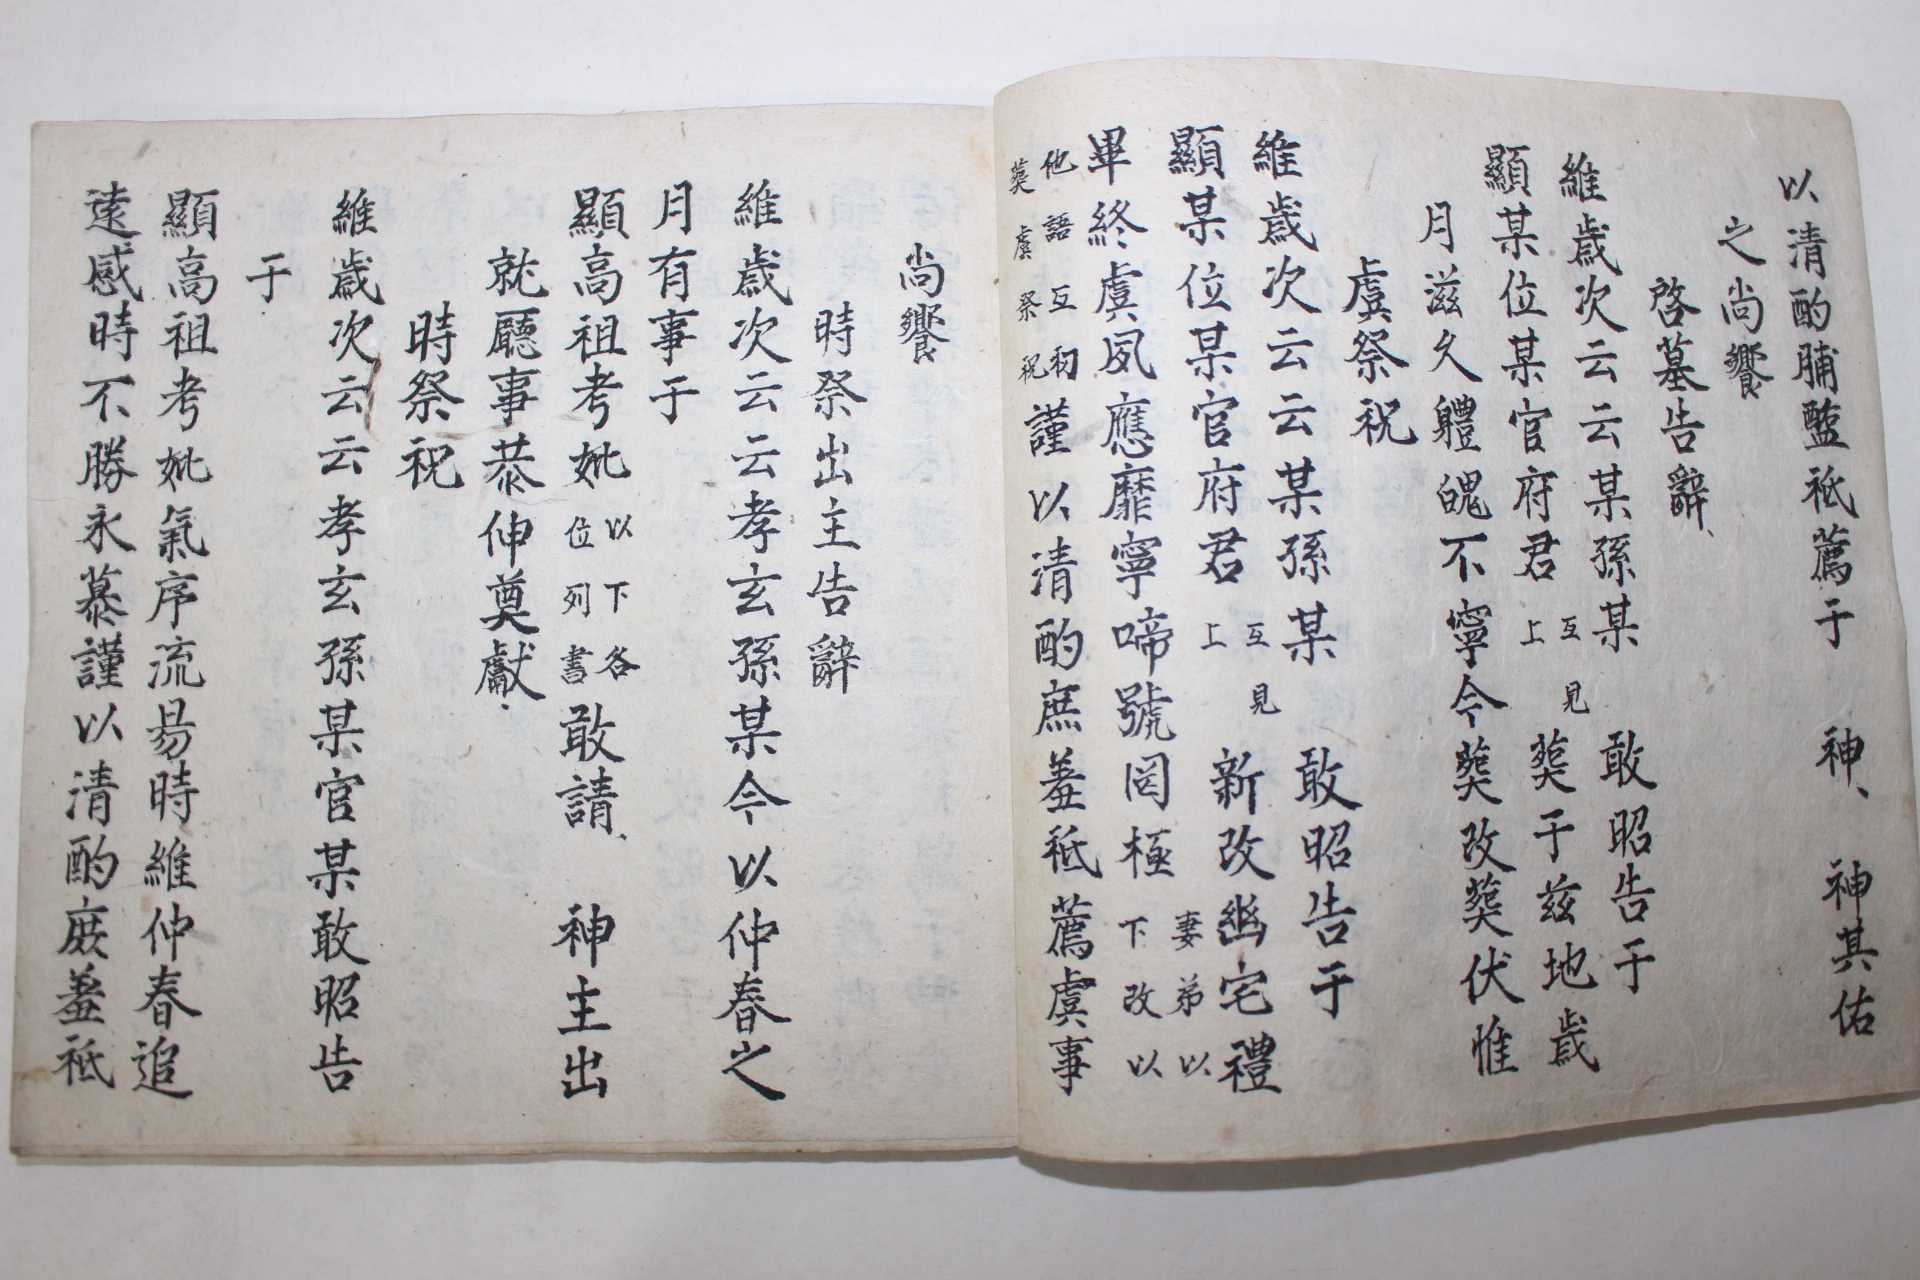 以清酌脯醢祗薦于　神、　神其佑
之尚饗
啓墓告辭、
維歲次云云某孫某　敢昭告于
顯某位某官府君互見上葬于玆地歲
月滋久體魄不寧今葬改葬伏惟
虞祭祝
維歲次云云某孫某　敢昭告于
顯某位某官府君互見上　新改幽宅禮
畢終虞夙應靡寧啼號罔極妻弟以下改以
他語互初葬虞祭祝謹以清酌庶羞祗薦虞事
尚饗
時祭出主告辭
維歲次云云孝玄孫某今以仲春之
月有事于
顯高祖考妣以下各位列書敢請、　神主出
就廳事恭伸奠獻、
時祭祝
維歲次云云孝玄孫某官某敢昭告
于
顯高祖考妣氣序流易時維仲春追
遠感時不勝永慕謹以清酌庶羞祗